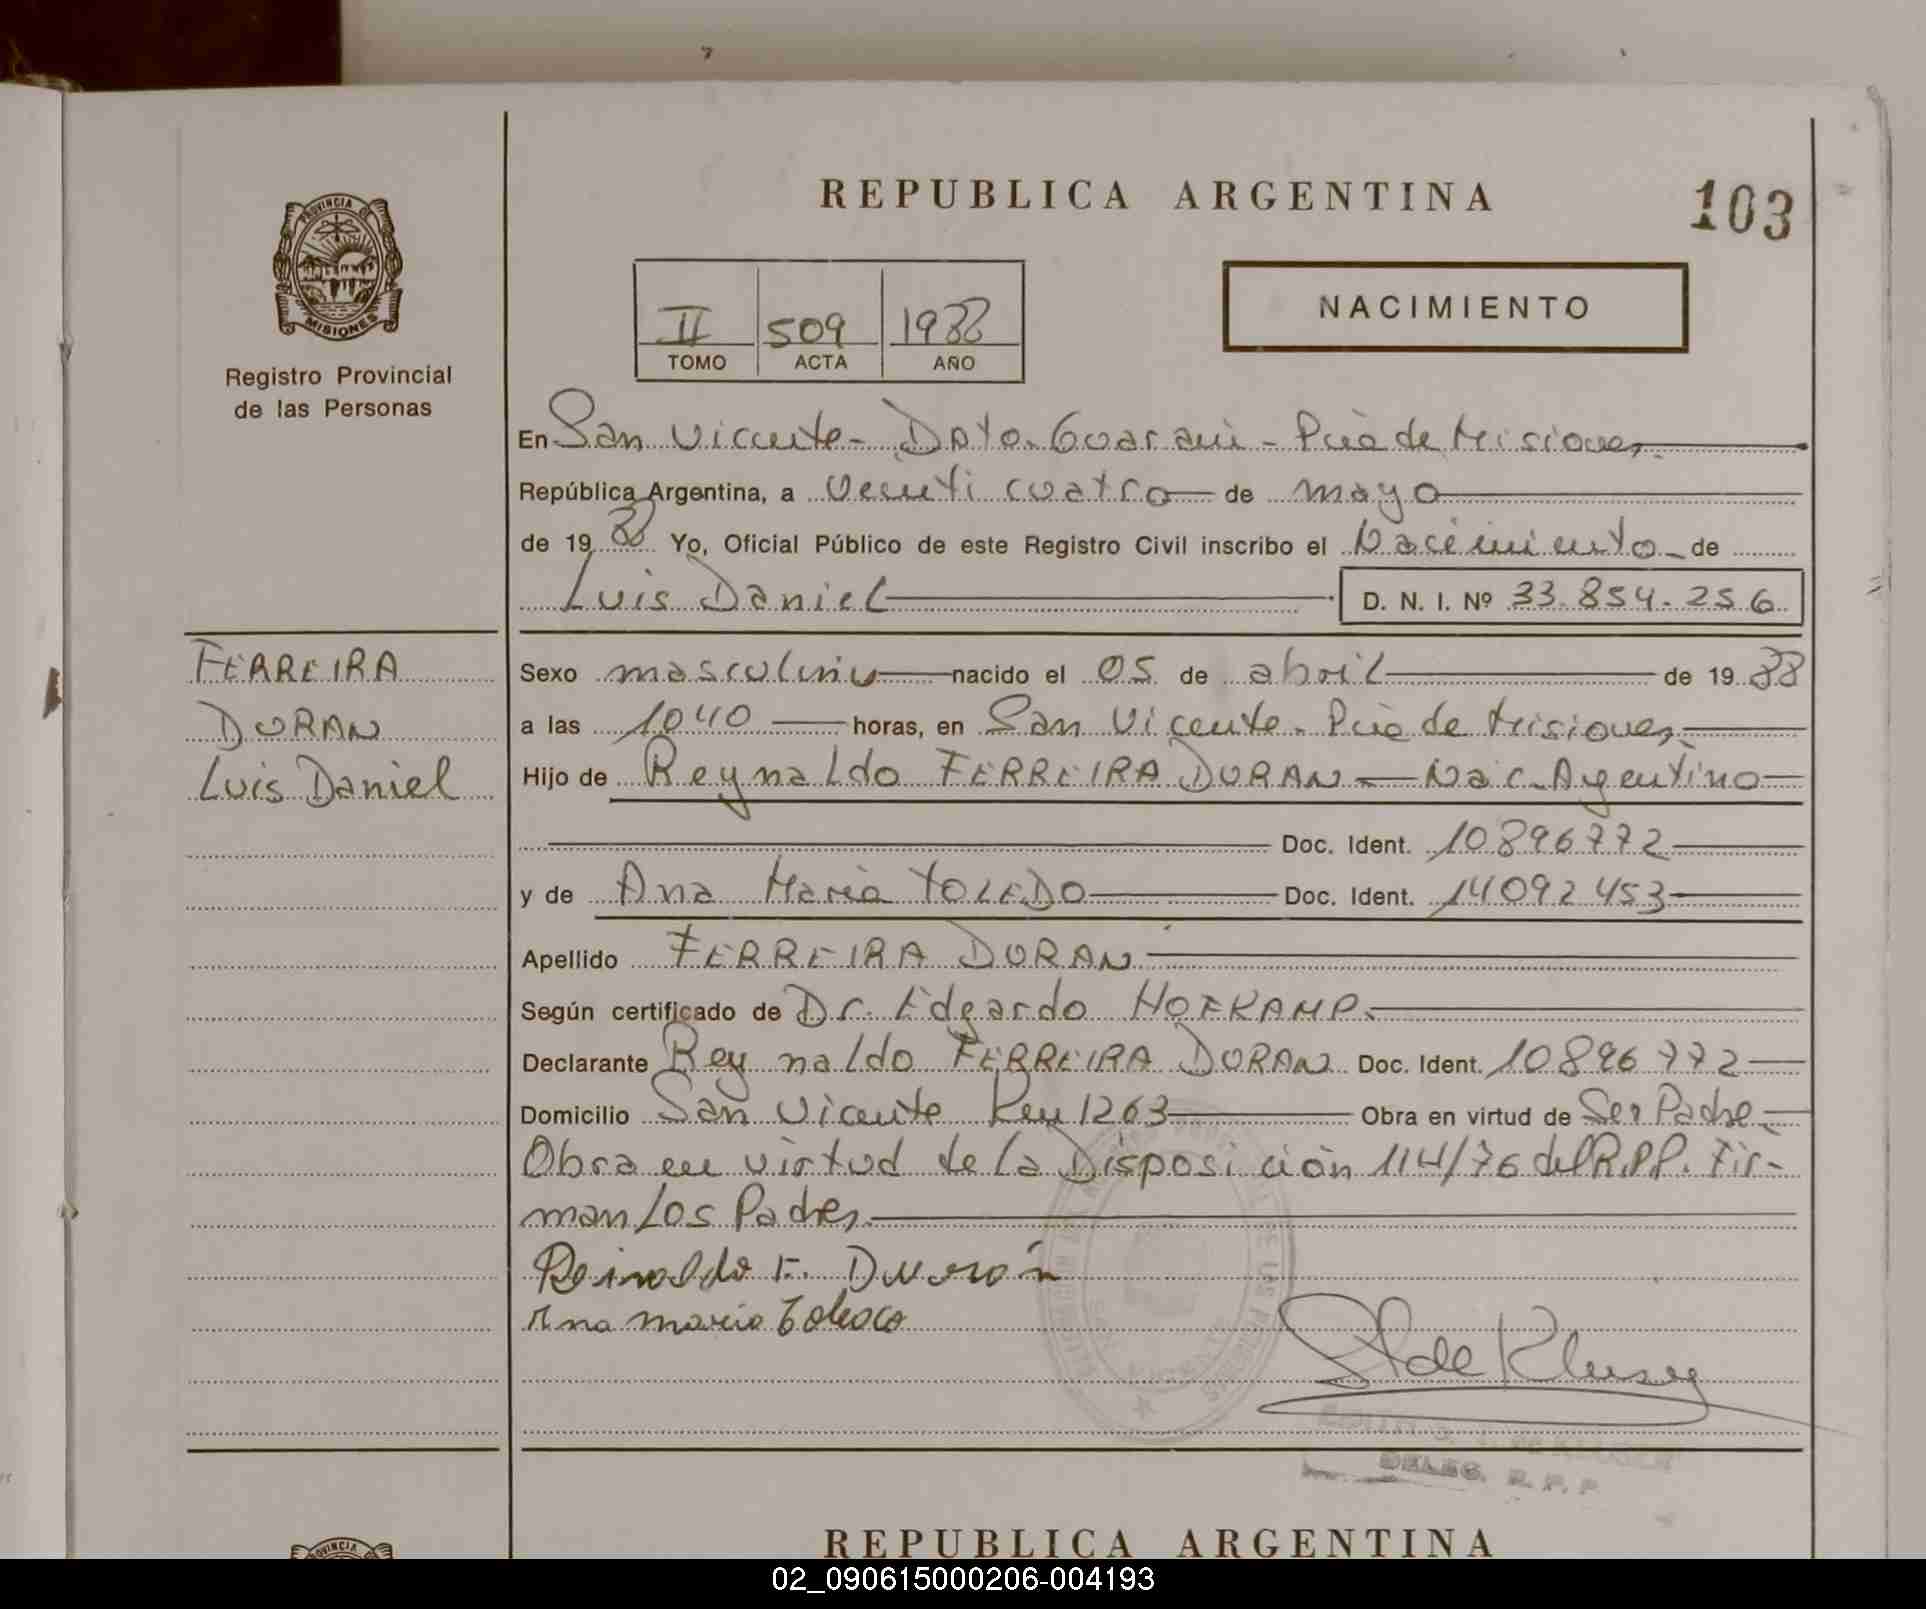 REPUBLICA ARGENTINA
103
PROVINCIA DE
MISIONES
Registro Provincial
de las Personas
II 509 1988
TOMO ACTA AÑO
NACIMIENTO
En San Vicente - Dpto. Guarani - Pcia de Misiones
República Argentina, a Veinti cuatro de mayo
de 1988 Yo, Oficial Público de este Registro Civil inscribo el Nacimiento de
Luis Daniel D. N. I. Nº 33.854.256
FERREIRA
DURAN
Luis Daniel
Sexo masculino nacido el 05 de abril de 1988
a las 1040 horas, en San Vicente - Pcia de Misiones
Hijo de Reynaldo FERREIRA DURAN - Nac. Argentino
Doc. Ident. 10896772
y de Ana Maria TOLEDO Doc. Ident. 14092453
Apellido FERREIRA DURAN
Según certificado de Dr. Edgardo HOFKAMP.
Declarante Reynaldo FERREIRA DURAN Doc. Ident. 10896772
Domicilio San Vicente Km 1263 Obra en virtud de Ser Padre
Obra en virtud de la Disposición 114/76 del R.P.P. Fir-
man Los Padres
Reinaldo F. Durán
Ana maria
SAN VICENTE
DE KLUSEN
DELEG. R. P. P.
PROVINCIA
REPUBLICA ARGENTINA
02_090615000206-004193